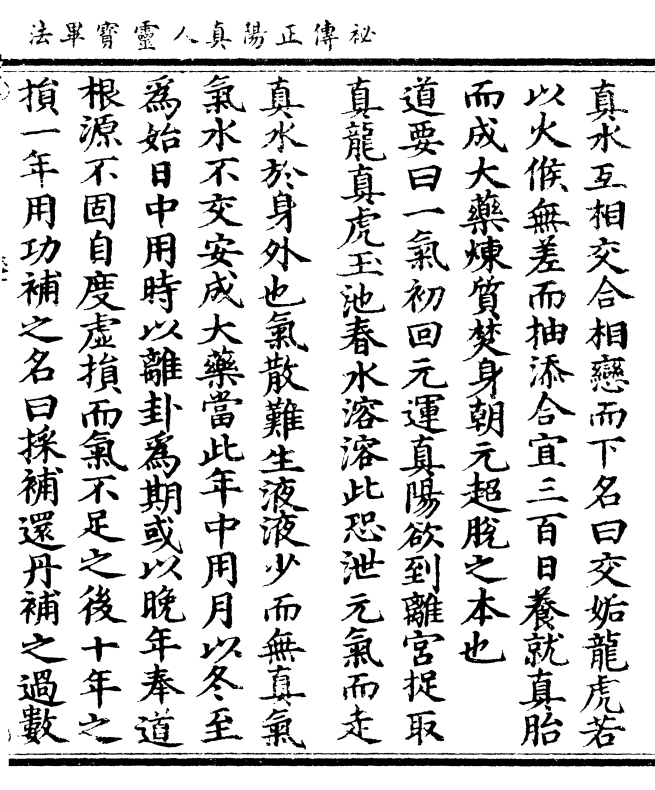 祕傳正陽真人靈寳畢法
真水互相交合相戀而下名曰交姤龍虎若
以火候無差而抽添合宜三百日養就真胎
而成大藥煉質焚身朝元超脫之本也
道要曰一氣初回元運真陽欲到離宮捉取
真龍真虎玉池春水溶溶此恐泄元氣而走
真水於身外也氣散難生液液少而無真氣
氣水不交安成大藥當此年中用月以冬至
爲始日中用時以離卦爲期或以晚年奉道
根源不固自度虛損而氣不足之後十年之
損一年用功補之名曰採補還丹補之過數